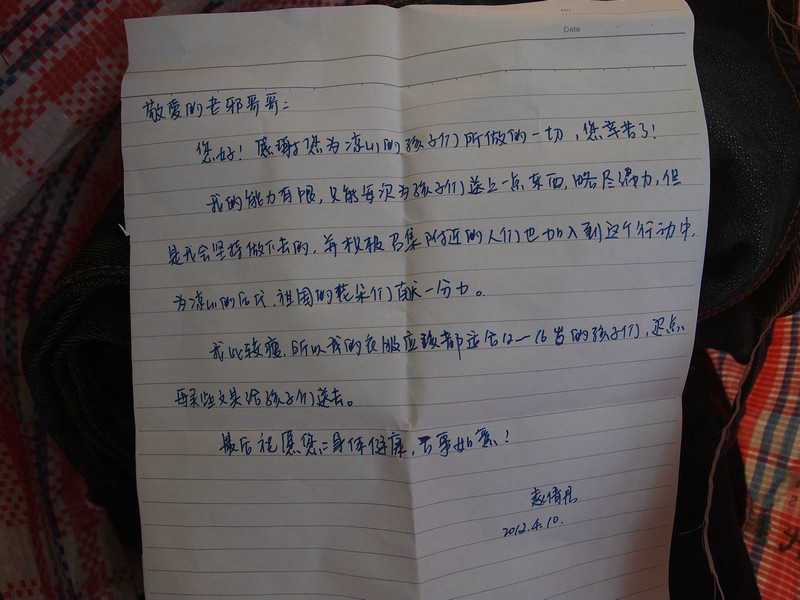 Date
敬爱的老邪哥哥:
您好!感谢您为凉山的孩子们所做的一切,您辛苦了!
我的能力有限,只能每次为孩子们送上一点东西,略尽绵力,但
是我会坚持做下去的,并积极召集附近的人们也加入到这个行动中,
为凉山的后代、祖国的花朵们献一分力。
我比较瘦,所以我的衣服应该都适合12—16岁的孩子们,迟点
再买些文具给孩子们送去。
最后祝愿您:身体健康,万事如意!
赵倩
2012.4.10.